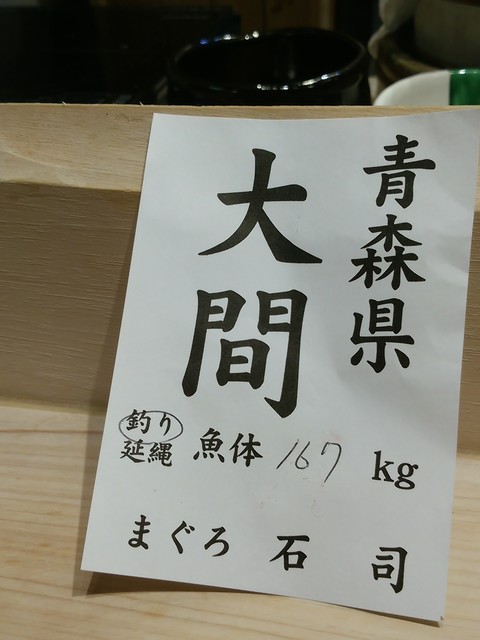 青森県
大間
釣り
延縄
魚体 167 kg
まぐろ 石司